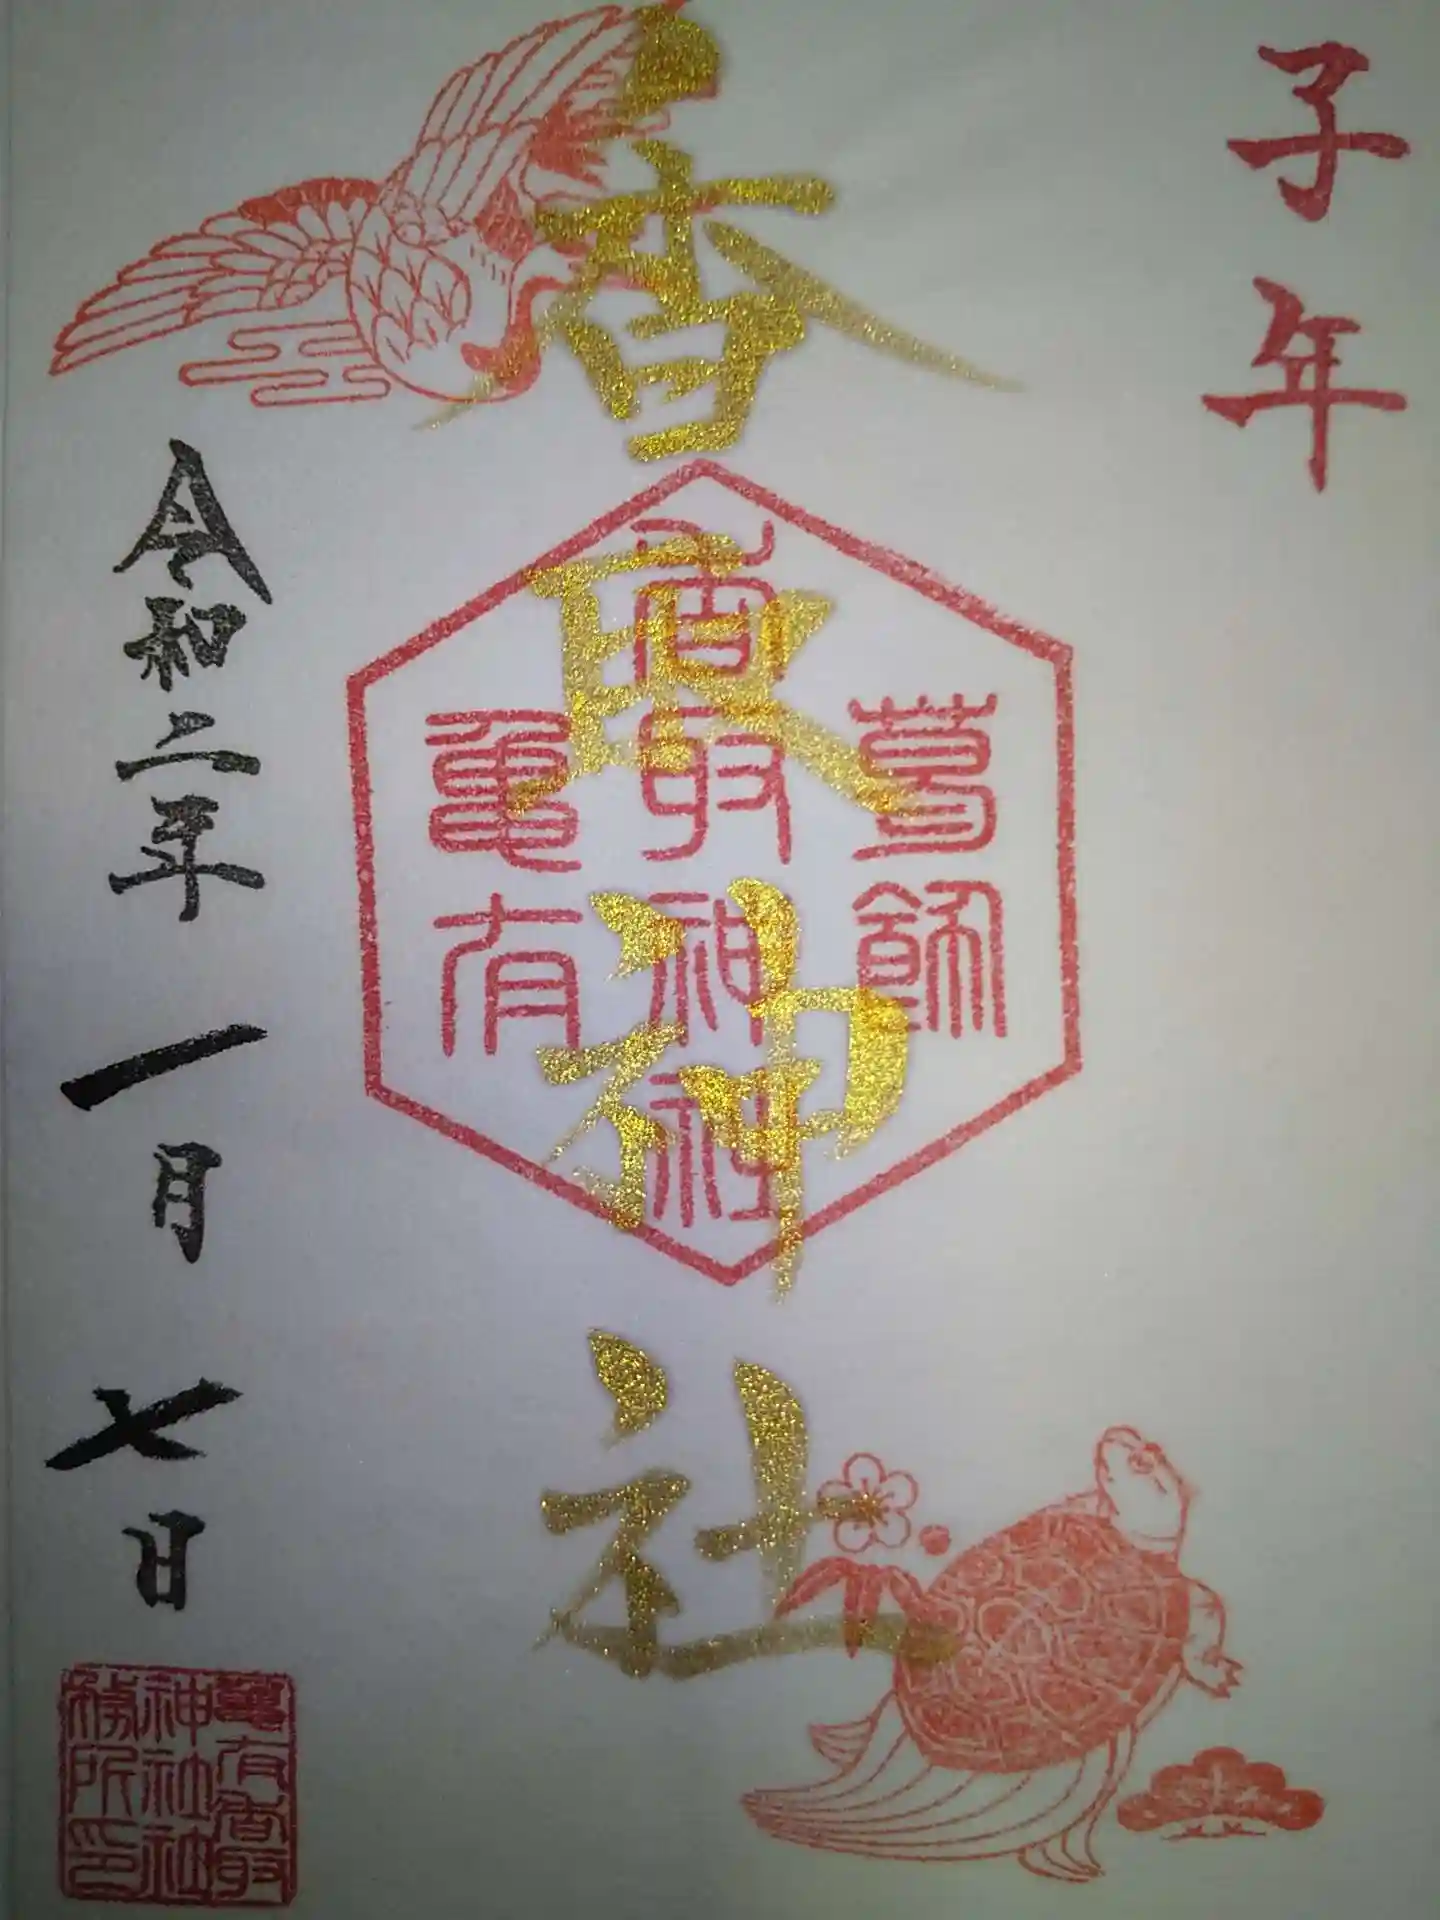 子年
香取神社
葛飾
香取神社
亀有
令和二年一月七日
亀有香取
神社社
務所印